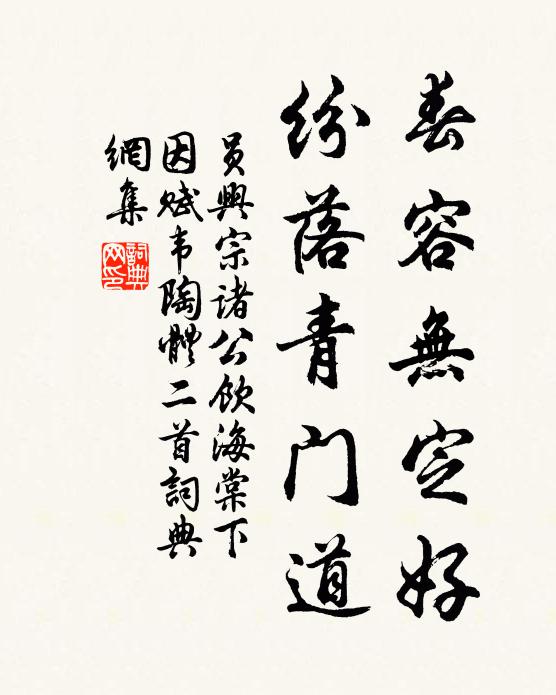 春容無定好
紛落青门道
員興宗諸公飲海棠下
因賦韦陶體二首詞典
網集
詞典网印